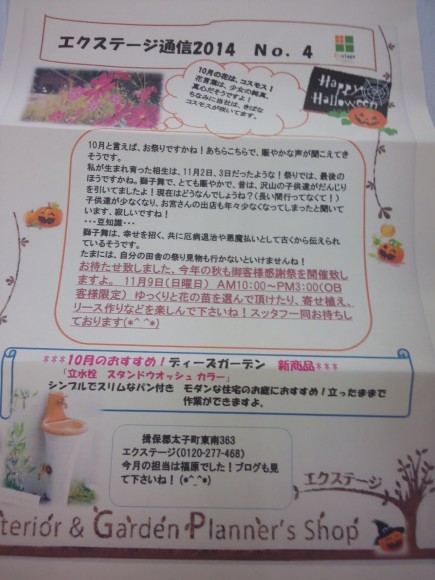 エクステージ通信2014 No. 4
10月の花は、コスモス！
花言葉は、少女の純真、
真心だそうですよ！
ちなみに当社は、きばな
コスモスが咲いてます。
Happy
Halloween
10月と言えば、お祭りですかね！あちらこちらで、賑やかな声が聞こえてき
そうです。
私が生まれ育った相生は、11月2日、3日だったような！祭りでは、最後の
ほうですかね。獅子舞で、とても賑やかで、昔は、沢山の子供達がだんじり
を引いてましたよ！現在はどうなんでしょうね？（長い間行ってなくて！）
子供達が少なくなり、お宮さんの出店も年々少なくなってしまったと聞いて
います、寂しいですね！
・・・豆知識・・・
獅子舞は、幸せを招く、共に厄病退治や悪魔払いとして古くから伝えられ
ているそうです。
たまには、自分の田舎の祭り見物も行かないといけませんね！
お待たせ致しました、今年の秋も御客様感謝祭を開催致し
ますよ。 11月9日（日曜日） AM10:00～PM3:00(OB
客様限定） ゆっくりと花の苗を選んで頂けたり、寄せ植え、
リース作りなどを楽しんで下さいね！スッタフ一同お待ちし
ております(*^_^*)
***10月のおすすめ！ディーズガーデン 新商品***
「立水栓 スタンドウオッシュ カラー」
シンプルでスリムなパン付き モダンな住宅のお庭におすすめ！立ったままで
作業ができますよ。
揖保郡太子町東南363
エクステージ（0120-277-468）
今月の担当は福原でした！ブログも見
て下さいね！(*^_^*)
エクステージ
terior & Garden Planner's Shop